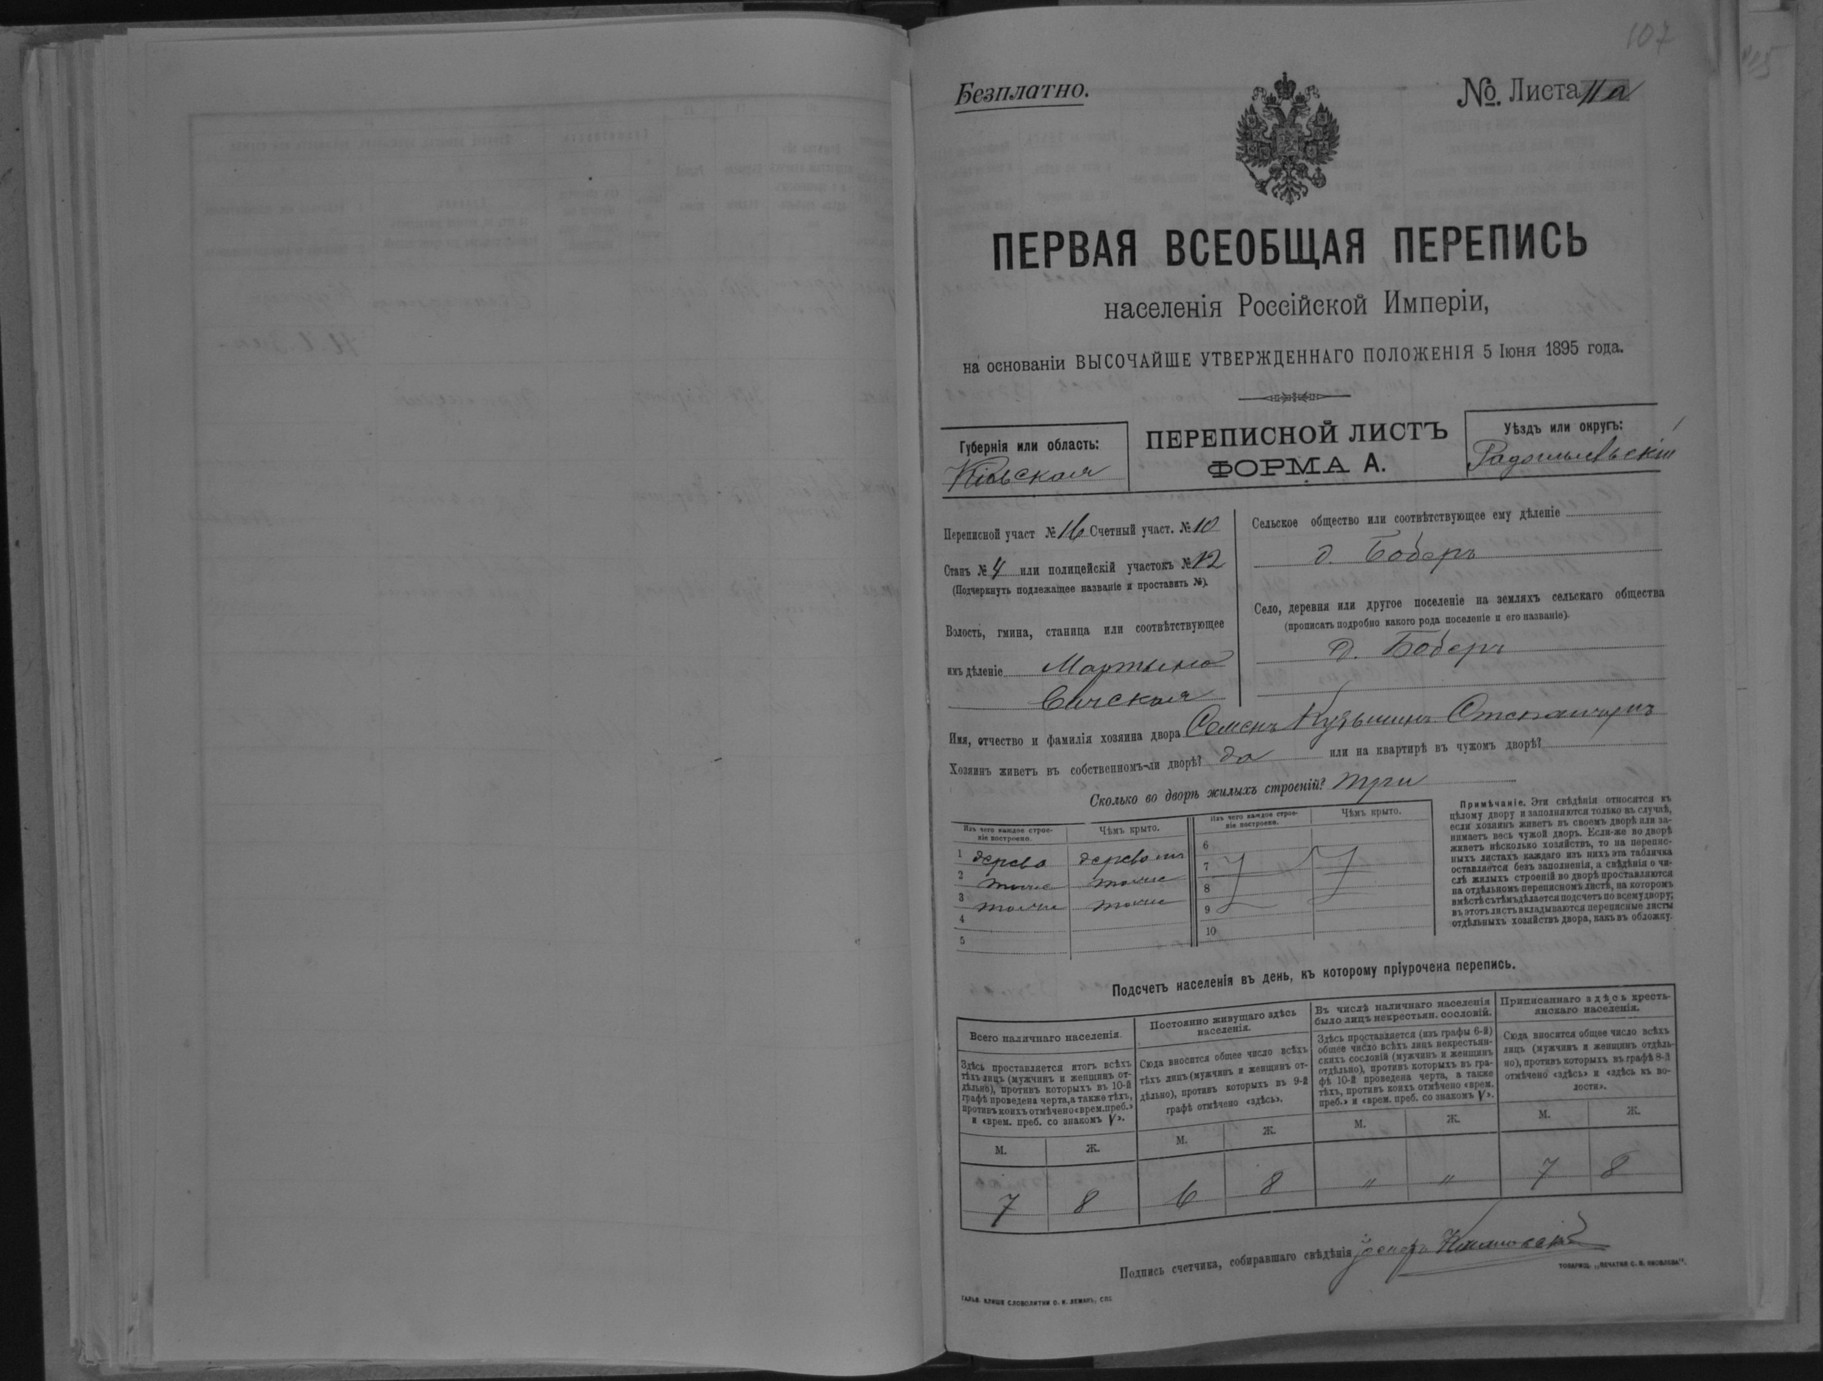 107
Безплатно.
№. Листа 11а
ПЕРВАЯ ВСЕОБЩАЯ ПЕРЕПИСЬ
населенія Россійской Имперіи,
на основаніи ВЫСОЧАЙШЕ УТВЕРЖДЕННАГО ПОЛОЖЕНІЯ 5 Іюня 1895 года.
Губернія или область:
Кіевская
ПЕРЕПИСНОЙ ЛИСТЪ
ФОРМА А.
Уѣздъ или округъ:
Радомысльскій
Переписной участ № 16 Счетный участ. № 10
Станъ № 4 или полицейскій участокъ № 12
(Подчеркнуть подлежащее названіе и проставить №).
Волость, гмина, станица или соотвѣтствующее
имъ дѣленіе Мартыно
вичская
Сельское общество или соотвѣтствующее ему дѣленіе
д. Боберъ
Село, деревня или другое поселеніе на земляхъ сельскаго общества
(прописать подробно какого рода поселеніе и его названіе).
д. Боберъ
Имя, отчество и фамилія хозяина двора Семенъ Кузьминъ
Хозяинъ живетъ въ собственномъ-ли дворѣ? да или на квартирѣ въ чужомъ дворѣ?
Сколько во дворѣ жилыхъ строеній? три
Изъ чего каждое строе-
ніе построено.
Чѣмъ крыто.
1 дерево деревомъ
2 тоже тоже
3 тоже тоже
4
5
Изъ чего каждое строе-
ніе построено.
Чѣмъ крыто.
6
7
8
9
10
Примѣчаніе. Эти свѣдѣнія относятся къ
цѣлому двору и заполняются только въ случаѣ,
если хозяинъ живетъ въ своемъ дворѣ или за-
нимаетъ весь чужой дворъ. Если-же во дворѣ
живетъ нѣсколько хозяйствъ, то на перепис-
ныхъ листахъ каждаго изъ нихъ эта табличка
оставляется безъ заполненія, а свѣдѣнія о чи-
слѣ жилыхъ строеній во дворѣ проставляются
на отдѣльномъ переписномъ листѣ, на которомъ
вмѣстѣ съ тѣмъ дѣлается подсчетъ по всему двору;
въ этотъ листъ вкладываются переписные листы
отдѣльныхъ хозяйствъ двора, какъ въ обложку.
Подсчетъ населенія въ день, къ которому пріурочена перепись.
Всего наличнаго населенія.
Здѣсь проставляется итогъ всѣхъ
тѣхъ лицъ (мужчинъ и женщинъ от-
дѣльно), противъ которыхъ въ 10-й
графѣ проведена черта, а также тѣхъ,
противъ коихъ отмѣчено «врем. преб.»
и «врем. преб. со знакомъ V».
М. Ж.
7 8
Постоянно живущаго здѣсь
населенія.
Сюда вносится общее число всѣхъ
тѣхъ лицъ (мужчинъ и женщинъ от-
дѣльно), противъ которыхъ въ 9-й
графѣ отмѣчено «здѣсь».
М. Ж.
6 8
Въ числѣ наличнаго населенія
было лицъ некрестьян. сословій.
Здѣсь проставляется (изъ графы 6-й)
общее число всѣхъ лицъ некрестьян-
скихъ сословій (мужчинъ и женщинъ
отдѣльно), противъ которыхъ въ гра-
фѣ 10-й проведена черта, а также
тѣхъ, противъ коихъ отмѣчено «врем.
преб.» и «врем. преб. со знакомъ V».
М. Ж.
" "
Приписаннаго здѣсь кресть-
янскаго населенія.
Сюда вносится общее число всѣхъ
лицъ (мужчинъ и женщинъ отдѣль-
но), противъ которыхъ въ графѣ 8-й
отмѣчено «здѣсь» и «здѣсь въ во-
лости».
М. Ж.
7 8
Подпись счетчика, собиравшаго свѣдѣнія
ГАЛЬВ. КЛИШЕ СЛОВОЛИТНИ О. И. ЛЕМАНЪ, СПБ.
ТОВАРИЩ. „ПЕЧАТНЯ С. П. ЯКОВЛЕВА".